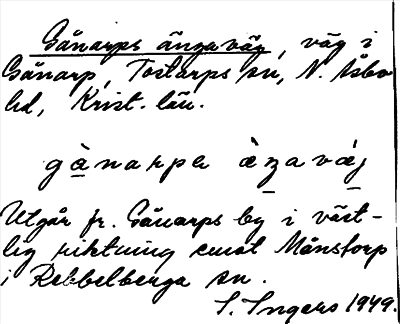 Gånarps ängaväg, väg i
Gånarp, Tostarps sn, N. Åsbo
hd, Krist. län.
gànarpa àŋavæ̀j
Utgår fr. Gånarps by i väst-
lig riktning emot Månstorp
i Rebbelberga sn.
S. Ingers 1949.